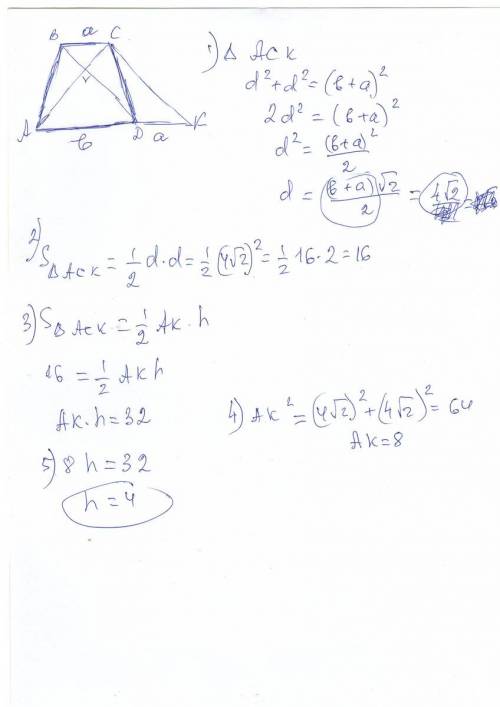 B a C
A в D a K
1) Δ ACK
d² + d² = (в+a)²
2d² = (в+a)²
d² = (в+a)²/2
d = (в+a)√2/2 = 4√2
2) S△ACK = 1/2 d·d = 1/2 (4√2)² = 1/2 16·2 = 16
3) S△ACK = 1/2 AK·h
16 = 1/2 AKh
AK·h = 32
4) AK² = (4√2)² + (4√2)² = 64
AK = 8
5) 8h = 32
h = 4